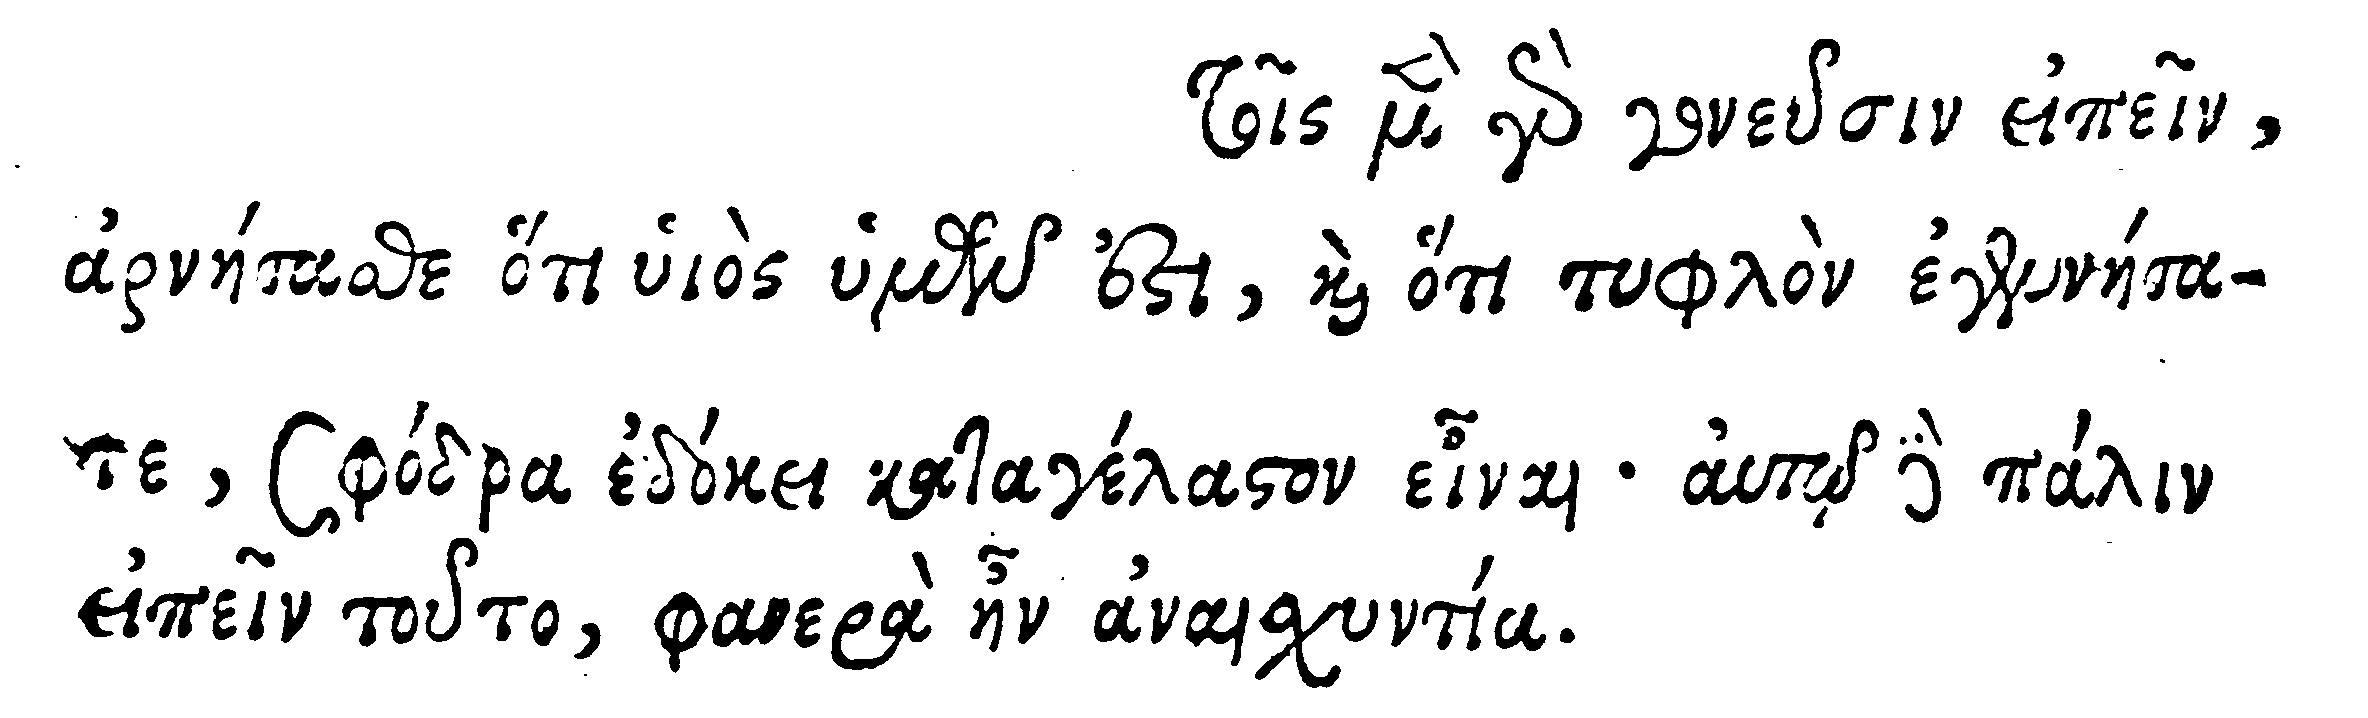 τοῖς μὲν γὰρ γονεῦσιν εἰπεῖν,
ἀρνήσασθε ὅτι υἱὸς ὑμῶν ἐστι, καὶ ὅτι τυφλὸν ἐγεννήσα-
τε, σφόδρα ἐδόκει καταγέλαστον εἶναι· αὐτῷ δὲ πάλιν
εἰπεῖν τοῦτο, φανερὰ ἦν ἀναισχυντία.